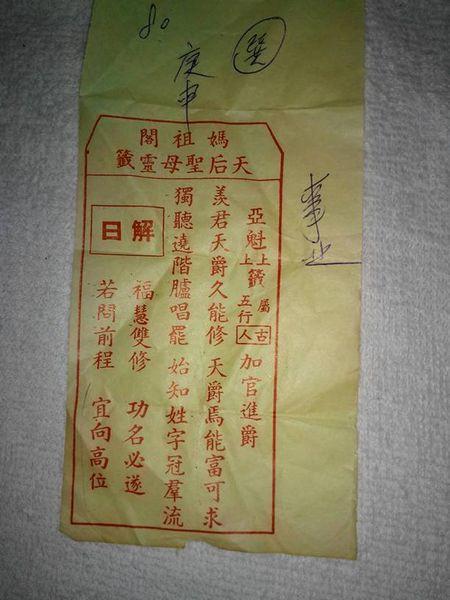 80
庚申
巽
事业
媽祖閣
天后聖母靈籤
亞魁 上上籤 屬五行 古人 加官進爵
羨君天爵久能修 天爵焉能富可求
獨聽遶階臚唱罷 始知姓字冠羣流
解曰
福慧雙修 功名必遂
若問前程 宜向高位